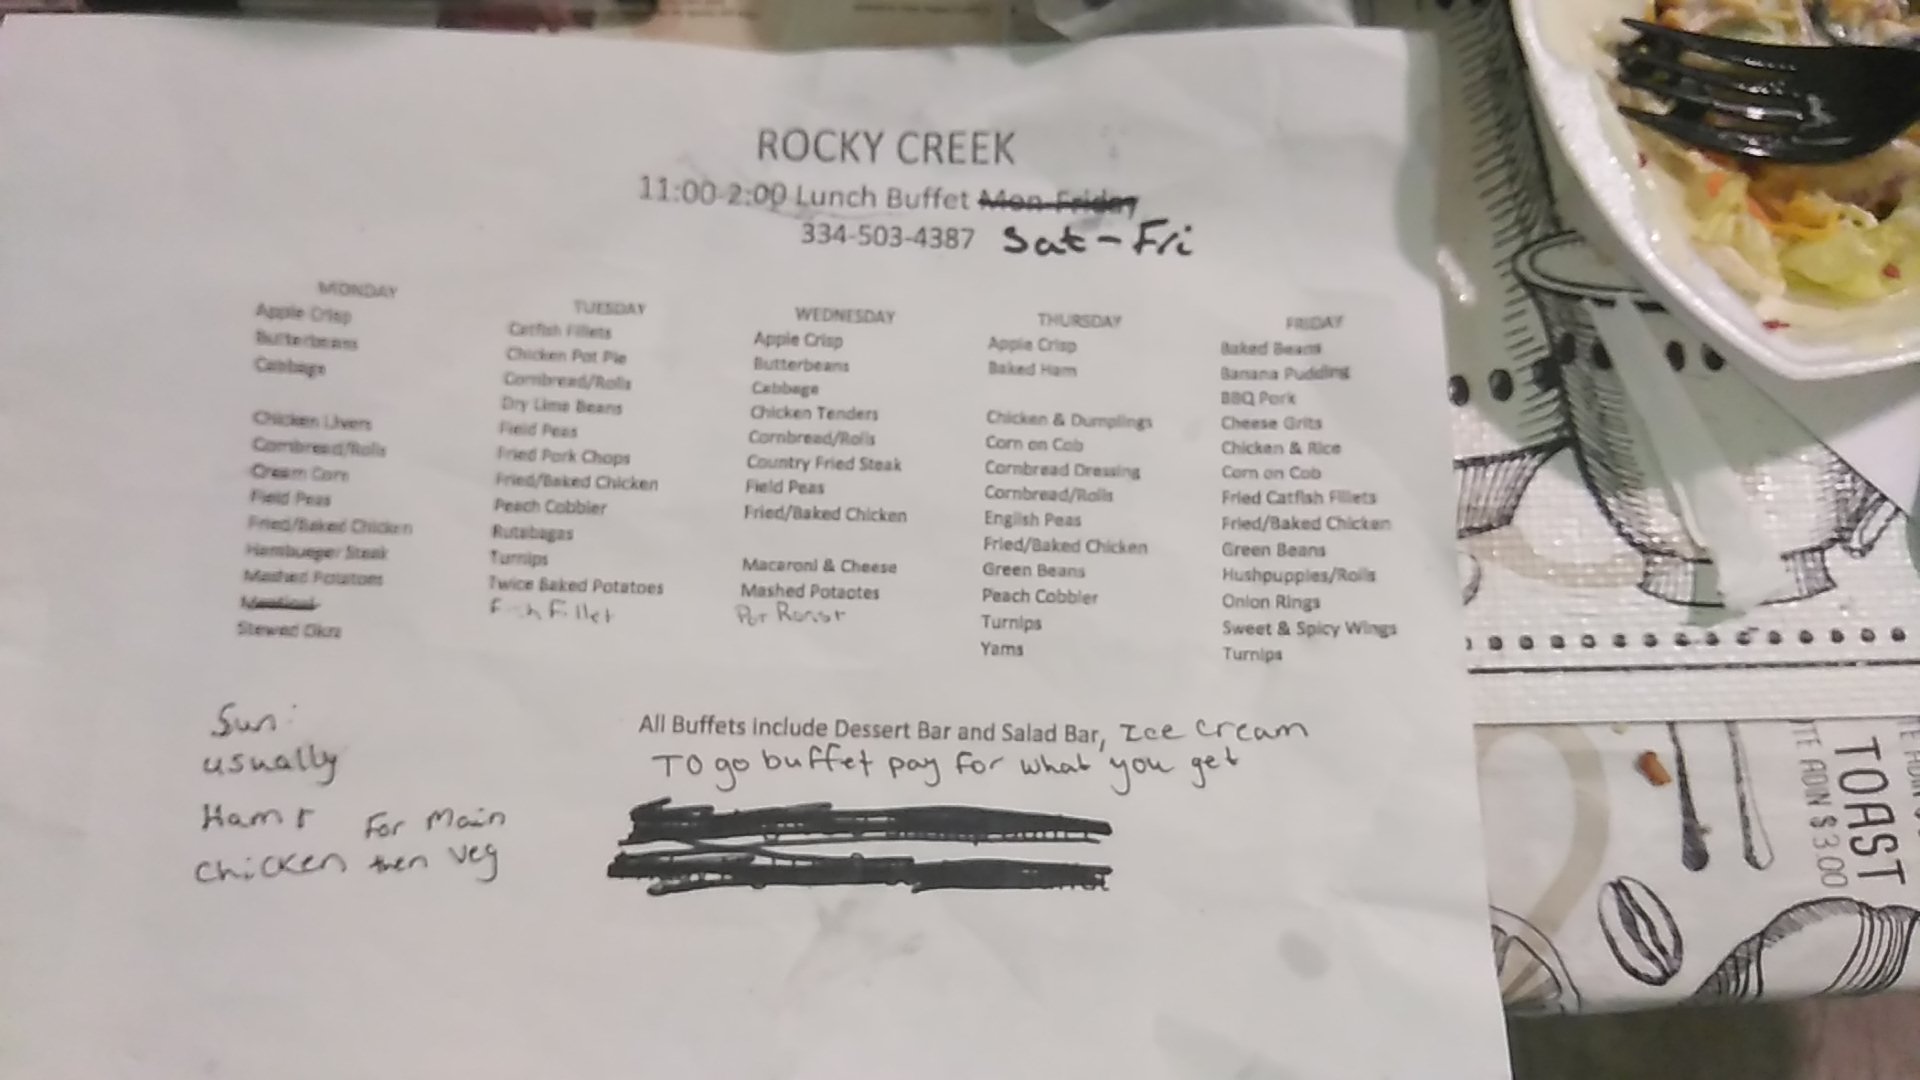 ROCKY CREEK
11:00-2:00 Lunch Buffet Mon-Friday
334-503-4387 Sat - Fri
MONDAY
Apple Crisp
Butterbeans
Cabbage
Chicken Livers
Cornbread/Rolls
Cream Corn
Field Peas
Fried/Baked Chicken
Hamburger Steak
Mashed Potatoes
Meatloaf
Stewed Okra
TUESDAY
Catfish Fillets
Chicken Pot Pie
Cornbread/Rolls
Dry Lima Beans
Field Peas
Fried Pork Chops
Fried/Baked Chicken
Peach Cobbler
Rutabagas
Turnips
Twice Baked Potatoes
Fish Fillet
WEDNESDAY
Apple Crisp
Butterbeans
Cabbage
Chicken Tenders
Cornbread/Rolls
Country Fried Steak
Field Peas
Fried/Baked Chicken
Macaroni & Cheese
Mashed Potaotes
Pot Roast
THURSDAY
Apple Crisp
Baked Ham
Chicken & Dumplings
Corn on Cob
Cornbread Dressing
Cornbread/Rolls
English Peas
Fried/Baked Chicken
Green Beans
Peach Cobbler
Turnips
Yams
FRIDAY
Baked Beans
Banana Pudding
BBQ Pork
Cheese Grits
Chicken & Rice
Corn on Cob
Fried Catfish Fillets
Fried/Baked Chicken
Green Beans
Hushpuppies/Rolls
Onion Rings
Sweet & Spicy Wings
Turnips
Sun:
usually
Ham & For Main
Chicken then veg
All Buffets include Dessert Bar and Salad Bar, Ice cream
To go buffet pay for what you get
TOAST
ADN $3.00